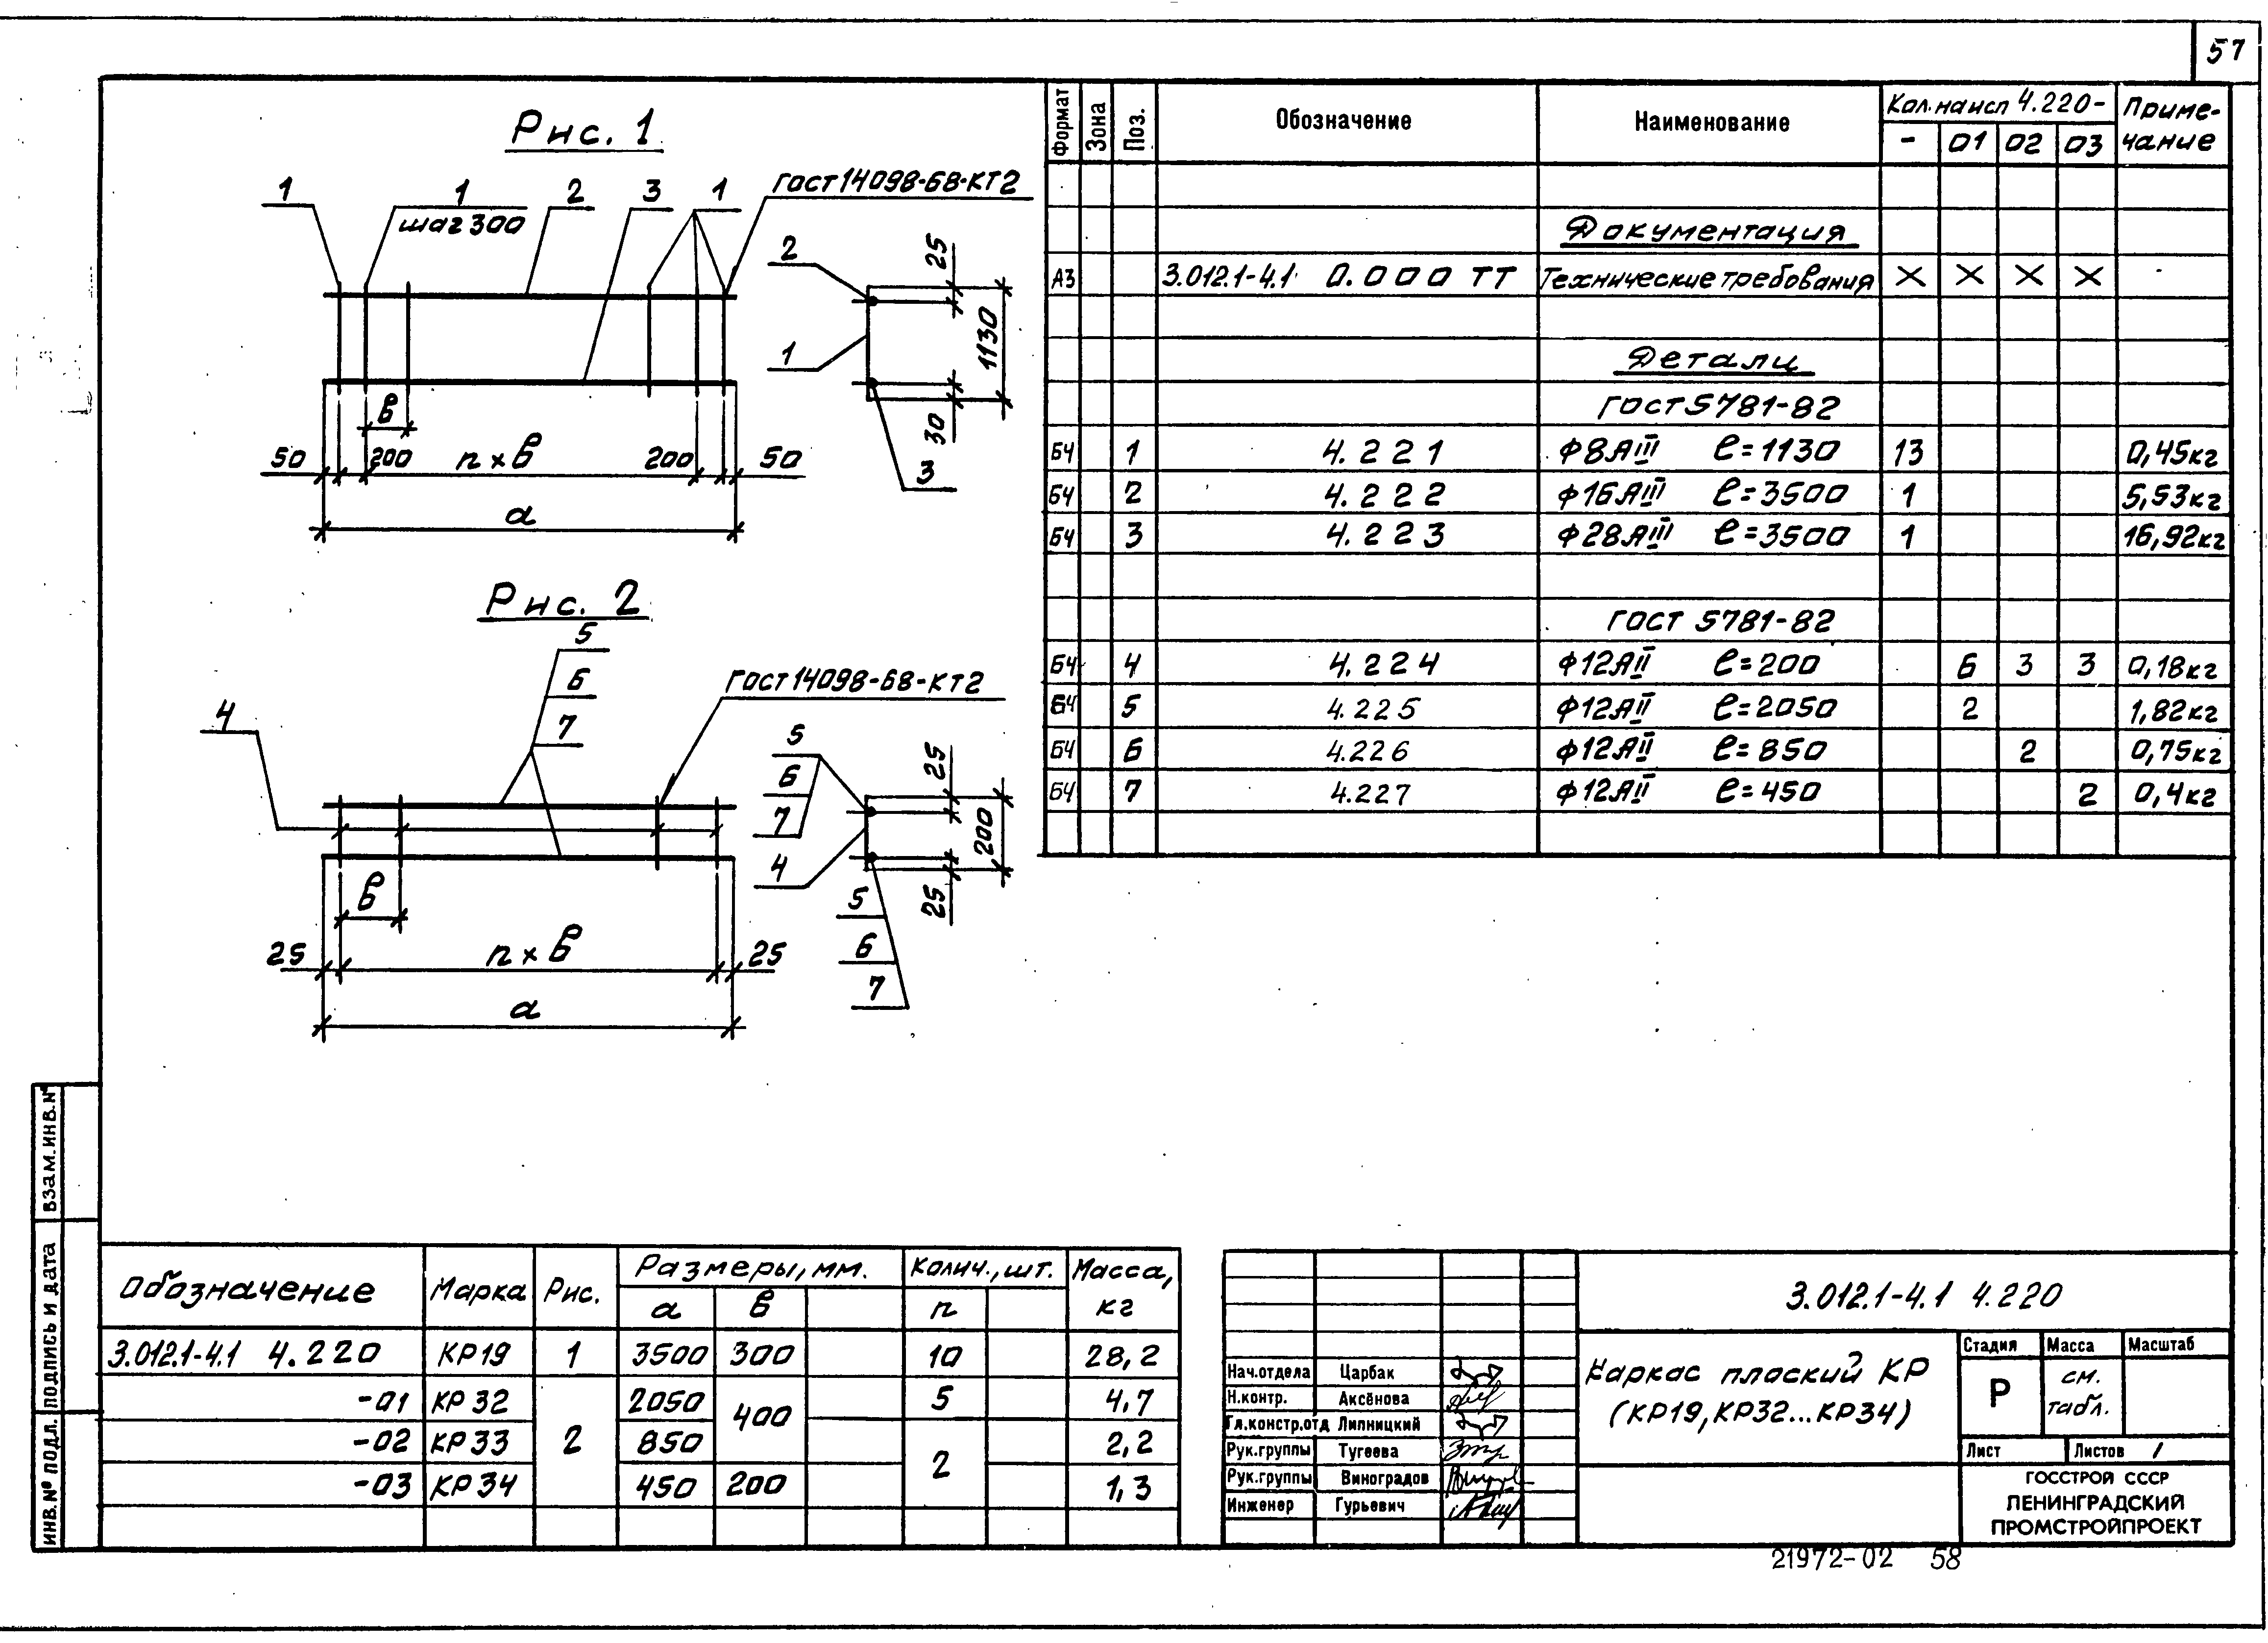 57
Рис. 1
1
1
шаг 300
2
3
1
ГОСТ 14098-68-КТ2
2
1
3
25
1130
30
в
50
200
n × в
200
50
а
Рис. 2
5
6
7
ГОСТ 14098-68-КТ2
4
5
6
7
4
25
200
25
5
6
7
в
25
n × в
25
а
Формат Зона Поз. Обозначение Наименование Кол. на исп 4.220- Приме-чание
- 01 02 03
Документация
А3 3.012.1-4.1 0.000 ТТ Технические требования × × × ×
Детали
ГОСТ 5781-82
БЧ 1 4.221 Ф8АIII ℓ=1130 13 0,45кг
БЧ 2 4.222 Ф16АIII ℓ=3500 1 5,53кг
БЧ 3 4.223 Ф28АIII ℓ=3500 1 16,92кг
ГОСТ 5781-82
БЧ 4 4.224 Ф12АII ℓ=200 6 3 3 0,18кг
БЧ 5 4.225 Ф12АII ℓ=2050 2 1,82кг
БЧ 6 4.226 Ф12АII ℓ=850 2 0,75кг
БЧ 7 4.227 Ф12АII ℓ=450 2 0,4кг
ВЗАМ.ИНВ.№
ПОДПИСЬ И ДАТА
ИНВ.№ ПОДЛ.
Обозначение Марка Рис. Размеры, мм. Колич., шт. Масса, кг
а в n
3.012.1-4.1 4.220 КР19 1 3500 300 10 28,2
-01 КР32 2 2050 400 5 4,7
-02 КР33 850 2 2,2
-03 КР34 450 200 1,3
3.012.1-4.1 4.220
Нач.отдела Царбак
Н.контр. Аксёнова
Гл.констр.отд Липницкий
Рук.группы Тугеева
Рук.группы Виноградов
Инженер Гурьевич
Каркас плоский КР
(КР19, КР32...КР34)
Стадия Масса Масштаб
Р см. табл.
Лист Листов 1
ГОССТРОЙ СССР
ЛЕНИНГРАДСКИЙ
ПРОМСТРОЙПРОЕКТ
21972-02 58